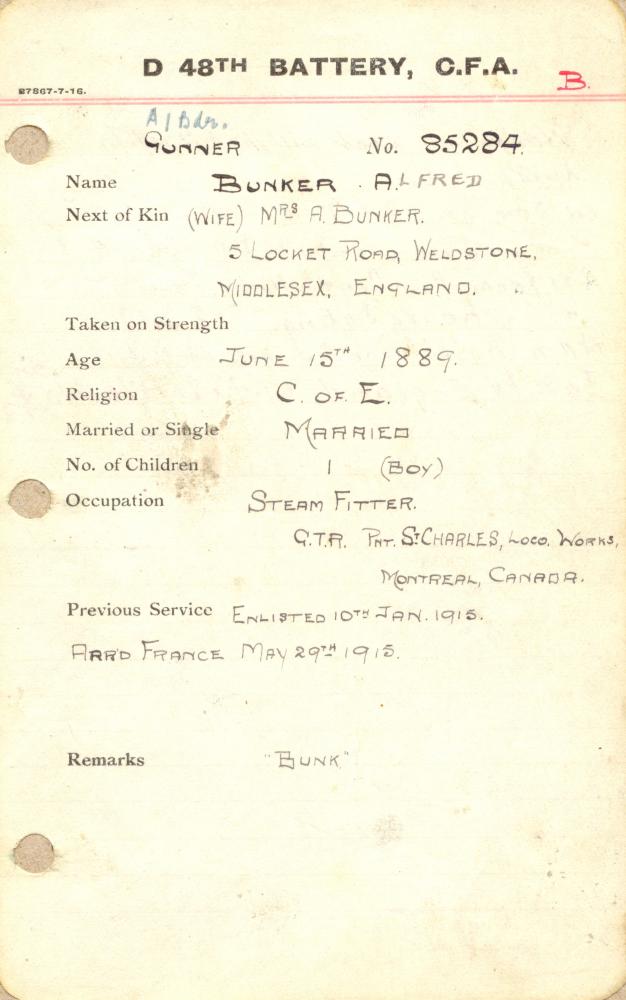 D 48TH BATTERY, C.F.A.
B.
27867-7-16.
A/Bdr.
GUNNER No. 85284.
Name BUNKER. ALFRED
Next of Kin (WIFE) MRS A. BUNKER.
5 LOCKET ROAD, WELDSTONE,
MIDDLESEX, ENGLAND.
Taken on Strength
Age JUNE 15TH 1889.
Religion C. OF. E.
Married or Single MARRIED
No. of Children 1 (BOY)
Occupation STEAM FITTER.
G.T.R. PNT. ST CHARLES, LOCO. WORKS,
MONTREAL, CANADA.
Previous Service ENLISTED 10TH JAN. 1915.
ARR'D FRANCE MAY 29TH 1915.
Remarks "BUNK"